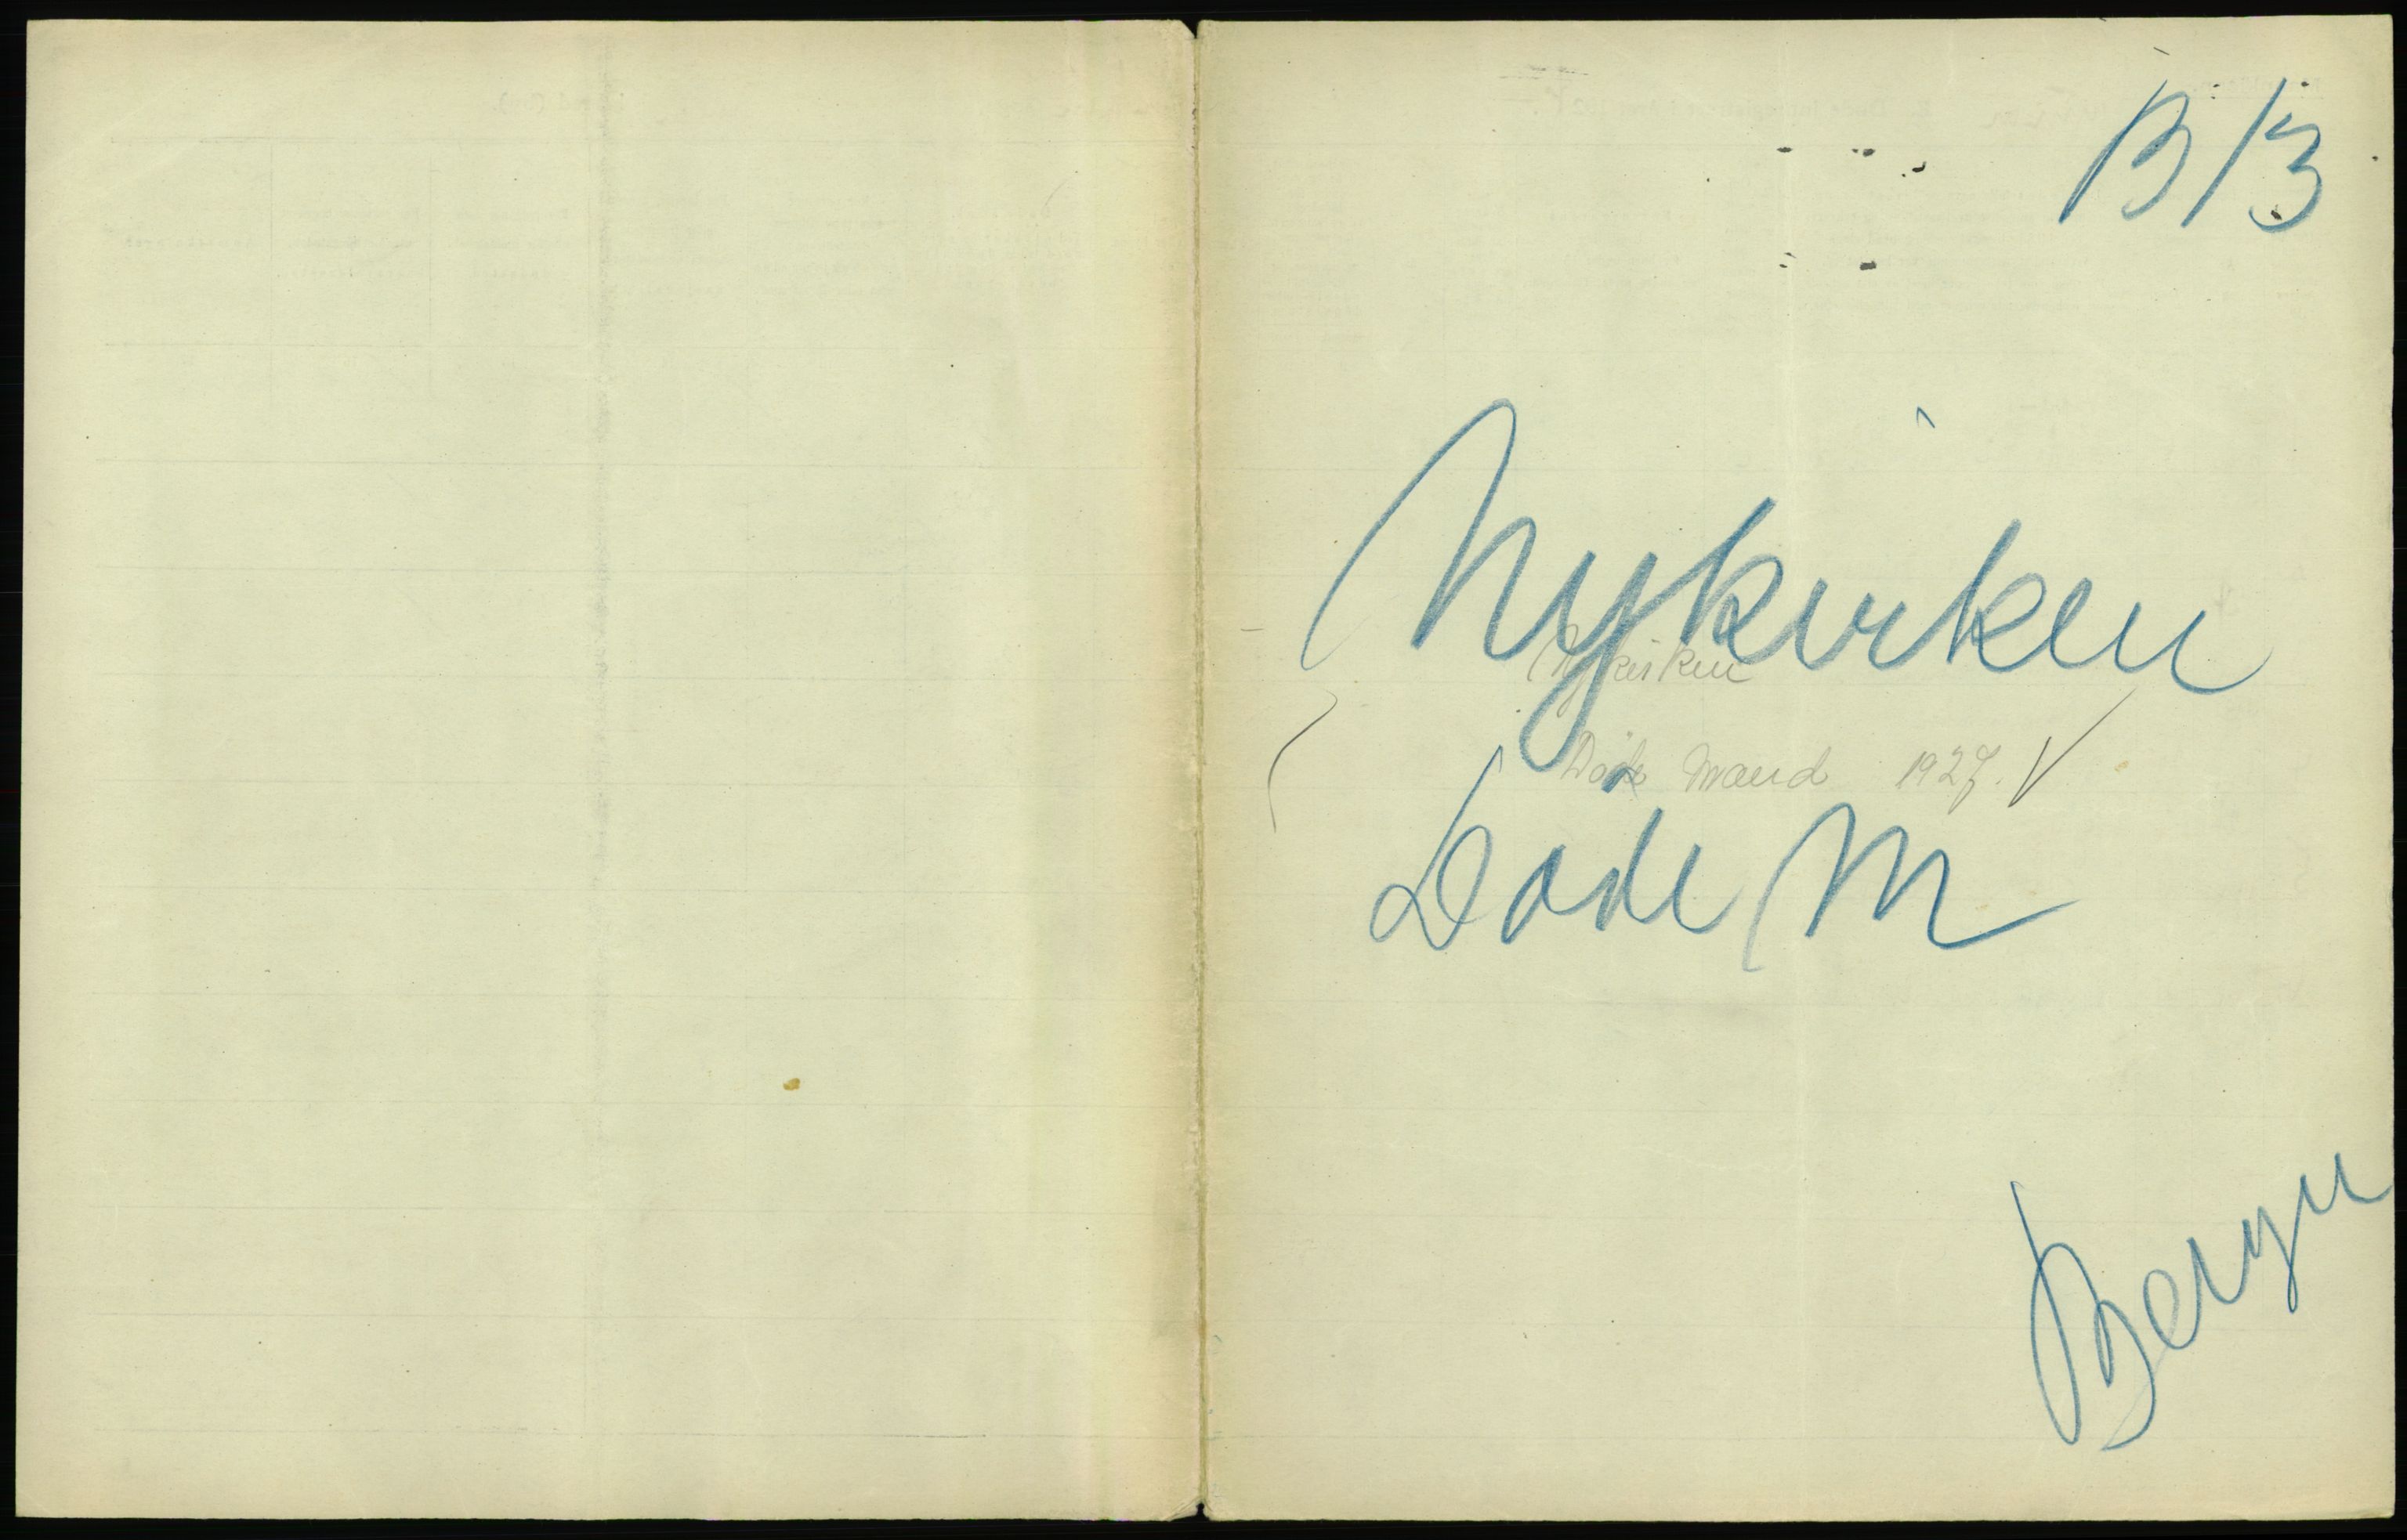 B/3
Nykirken
Nykirken
Døde Mænd 1927. V
Døde M
Bergen